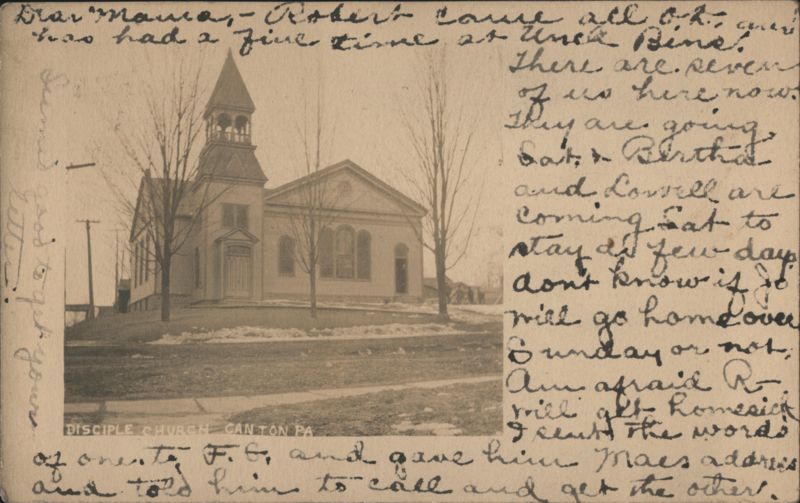 Dear Mama,- Robert came all O.K. and
has had a fine time at Uncle Bens!
There are seven
of us here now.
They are going
Sat. & Bertha
and Lowell are
coming Sat to
stay a few days
don't know if Jo
will go home over
Sunday or not,
Am afraid R-
will get homesick
I sent the words
of one to F. C. and gave him Maes address
and told him to call and get the other.
Seemed good to get yours
DISCIPLE CHURCH CANTON PA